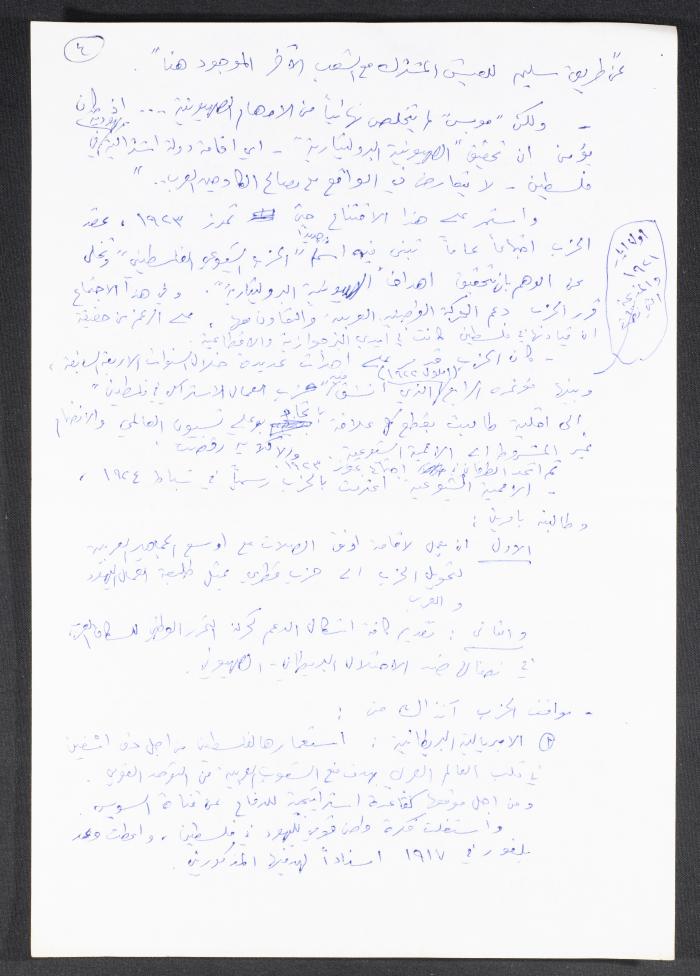 ٤
عن طريق سليم للعيش المشترك مع الشعب الآخر الموجود هنا".
- ولكن "موبس" لم يتخلص نهائياً من الاوهام الصهيونية ... اذ كان
يؤمن ان تحقيق "الصهيونية البروليتارية" - اي اقامة دولة اشتراكية يهودية في
فلسطين - لا يتعارض في الواقع مع مصالح الكادحين العرب.."
واستمر على هذا الاقتناع حتى تموز ١٩٢٣، عقد
الحزب اجتماعاً عاماً تبنى فيه اسماً جديداً "الحزب الشيوعي الفلسطيني" وتخلى
عن الوهم بان تحقيق اهداف "الصهيونية البروليتارية". وفي هذا الاجتماع
قرر الحزب دعم الحركة الوطنية العربية والتعاون معها، على الرغم من حقيقة
ان قيادتها في فلسطين كانت في أيدي البرجوازية والاقطاعية.
- كان الحزب قد مر على احداث عديدة خلال السنوات الاربعة السابقة،
وبينها مؤتمره الرابع (ايلول ١٩٢٢) الذي انشق فيه "حزب العمال الاشتراكي في فلسطين"
الى اقلية طالبت بقطع كل علاقة باتحاد بوعالي تسيون العالمي والانضمام
غير المشروط الى الاممية الشيوعية والاكثرية رفضت.
ثم اتحد الطرفان في اجتماع تموز ١٩٢٣.
- الاممية الشيوعية اعترفت بالحزب رسمياً في شباط ١٩٢٤،
وطالبته بامرين:
الاول ان يعمل لاقامة اوثق الصلات مع اوسع الجماهير العربية
لتحويل الحزب الى حزب قطري يمثل طليعة العمال اليهود
والعرب
والثاني: تقديم كافة اشكال الدعم لحركة التحرر الوطني للسكان العرب
في نضالها ضد الاحتلال البريطاني - الصهيوني.
- مواقف الحزب آنذاك من:
١ الامبريالية البريطانية: استعمارها لفلسطين من اجل دق اسفين
في قلب العالم العربي بهدف منع الشعوب العربية من التوحد القومي.
ومن اجل موقعها كقاعدة استراتيجية للدفاع عن قناة السويس
واستغلت فكرة وطن قومي لليهود في فلسطين، واعطت وعد
بلفور في ١٩١٧ اسناداً لهدفيها المذكورين.
١٩٢١